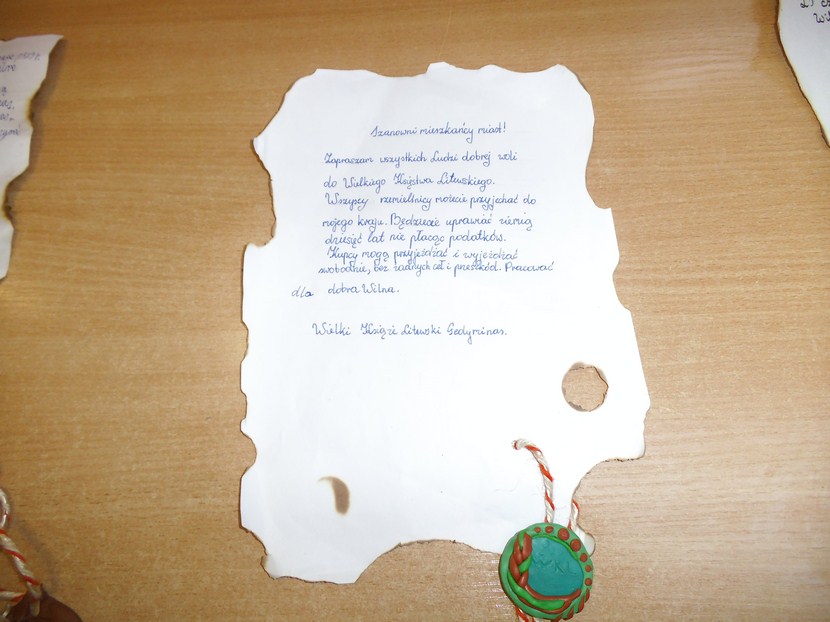 Szanowni mieszkańcy miast!
Zapraszam wszystkich Ludzi dobrej woli
do Wielkiego Księstwa Litewskiego.
Wszyscy rzemieślnicy możecie przyjechać do
mojego kraju. Będziecie uprawiać ziemię
dziesięć lat nie płacąc podatków.
Kupcy mogą przyjeżdżać i wyjeżdżać
swobodnie, bez żadnych ceł i przeszkód. Pracować
dla dobra Wilna.
Wielki Książe Litewski Gedyminas.
WKL